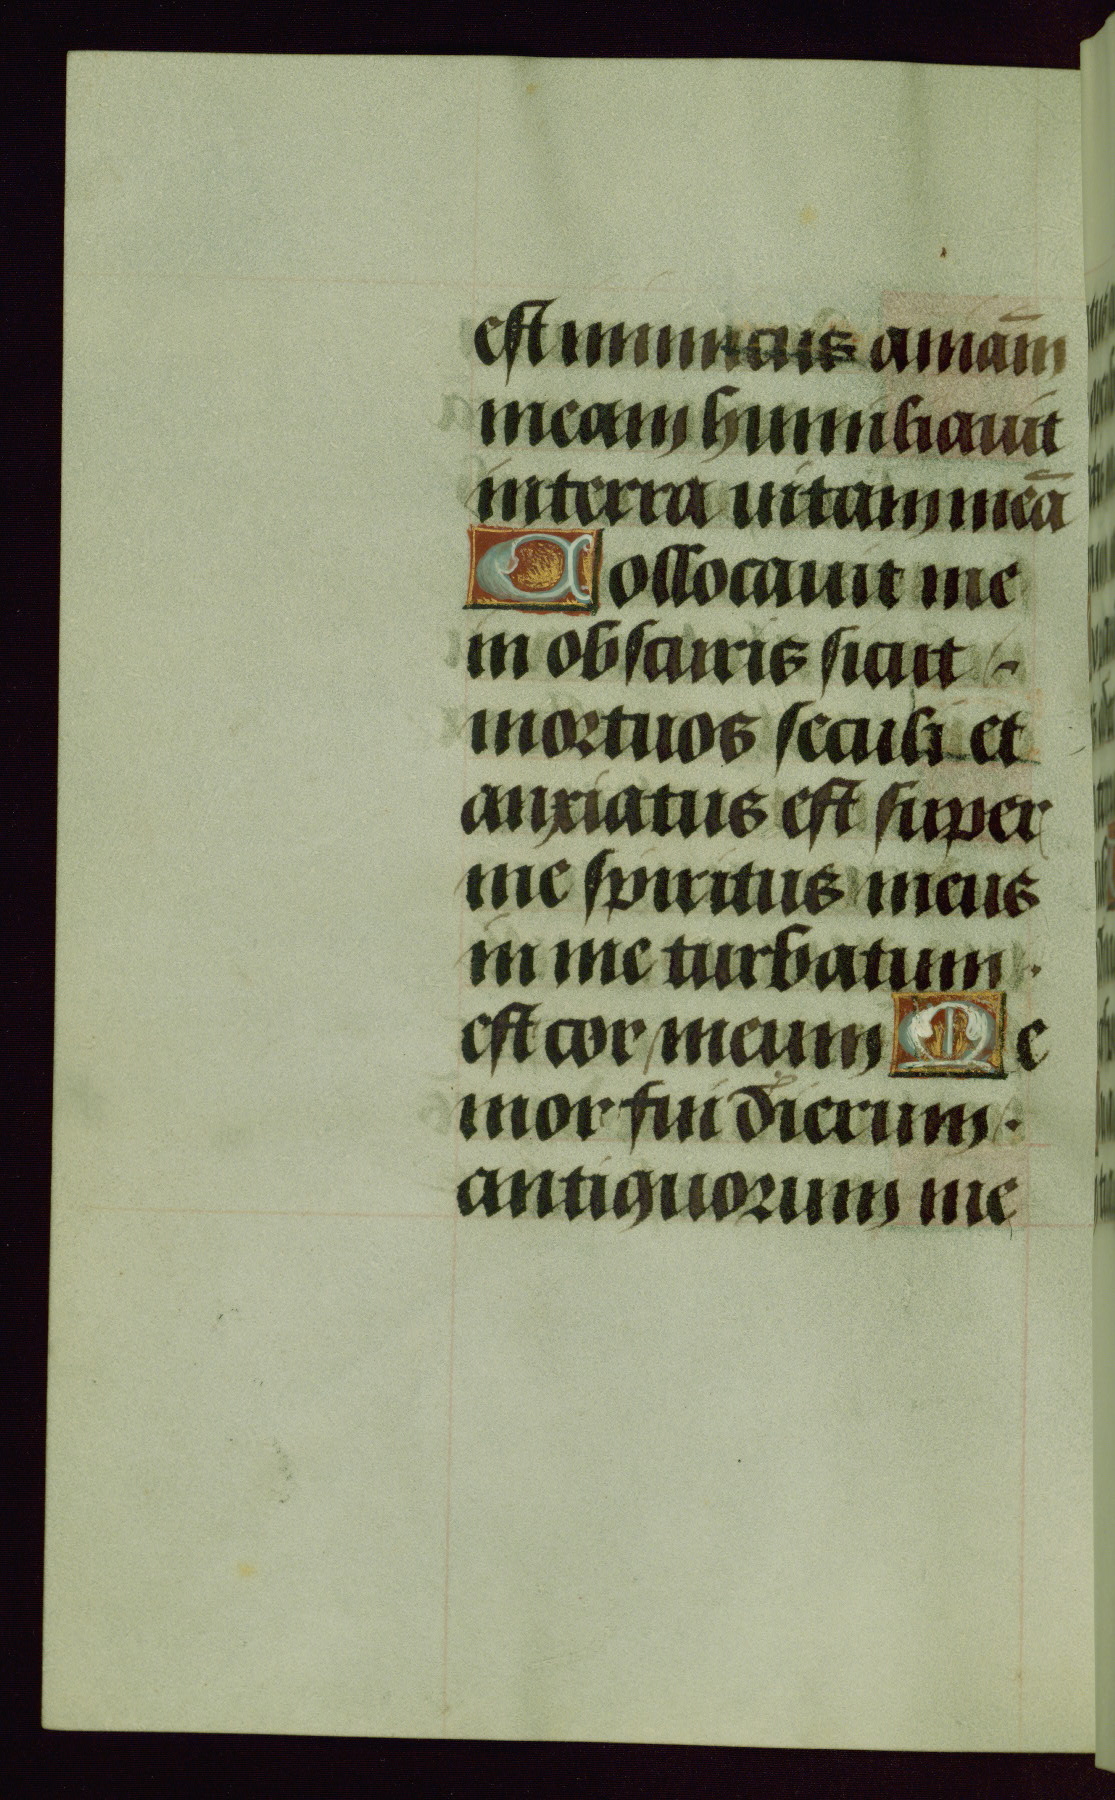 est inimicus amam̄
meam humiliauit
in terra uitam meā
Collocauit me
in obscuris sicut -
mortuos seculi et
anxiatus est super
me spiritus meus
in me turbatum ·
est cor meum Me
mor fui dierum ·
antiquorum me